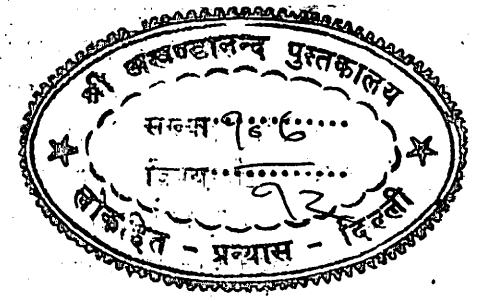 श्री अखण्डानन्द पुस्तकालय
संख्या १६७
विषय १२
लोकहित - प्रन्यास - दिल्ली